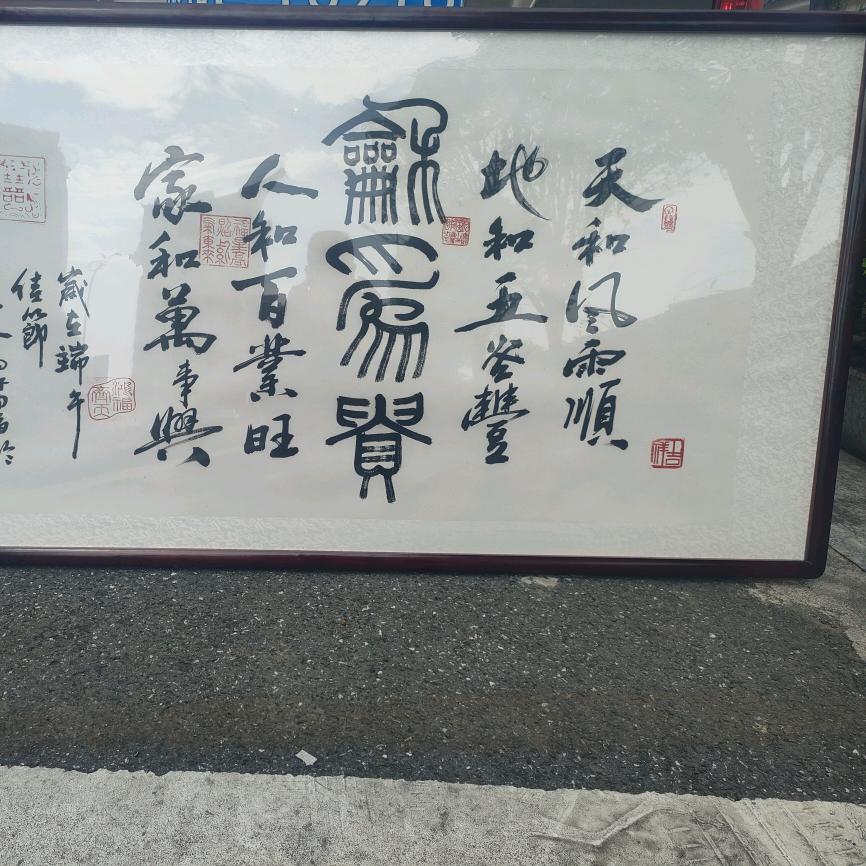 天和风雨順
地和五谷豐
龢為貴
人和百業旺
家和萬事興
歲在端午
佳節